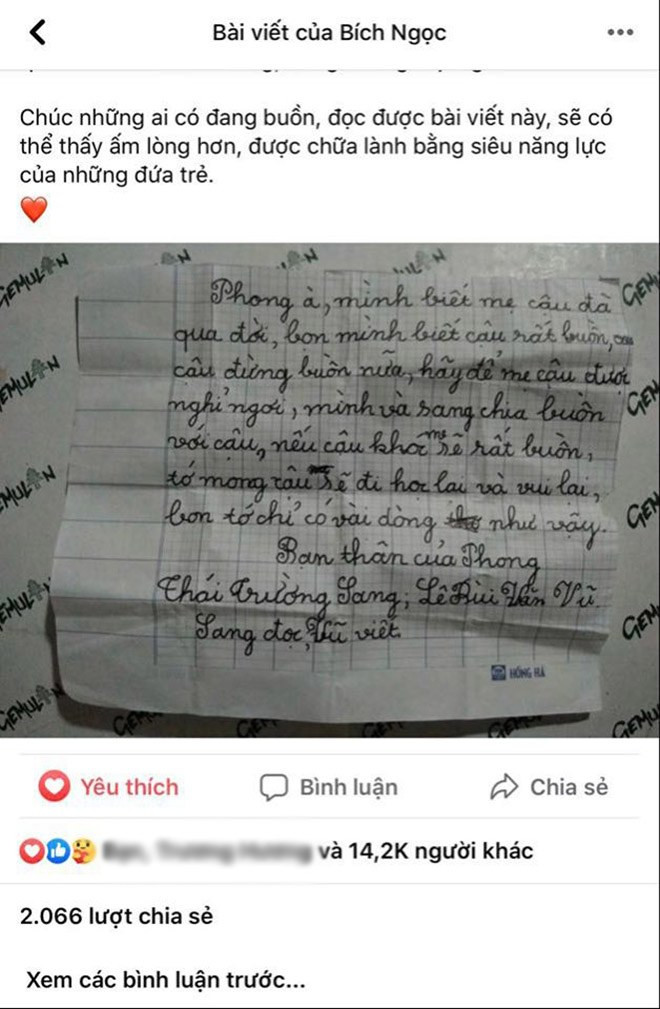 Bài viết của Bích Ngọc
Chúc những ai có đang buồn, đọc được bài viết này, sẽ có
thể thấy ấm lòng hơn, được chữa lành bằng siêu năng lực
của những đứa trẻ.
Phong à, mình biết mẹ cậu đã
qua đời, bọn mình biết cậu rất buồn,
cậu đừng buồn nữa, hãy để mẹ cậu được
nghỉ ngơi, mình và sang chia buồn
với cậu, nếu cậu khóc mẹ sẽ rất buồn,
tớ mong cậu sẽ đi học lại và vui lại,
bọn tớ chỉ có vài dòng như vậy.
Bạn thân của Phong
Thái Trường Sang; Lê Bùi Văn Vũ
Sang đọc, Vũ viết.
HỒNG HÀ
GEMULAN
GEMULAN
Yêu thích
Bình luận
Chia sẻ
và 14,2K người khác
2.066 lượt chia sẻ
Xem các bình luận trước...